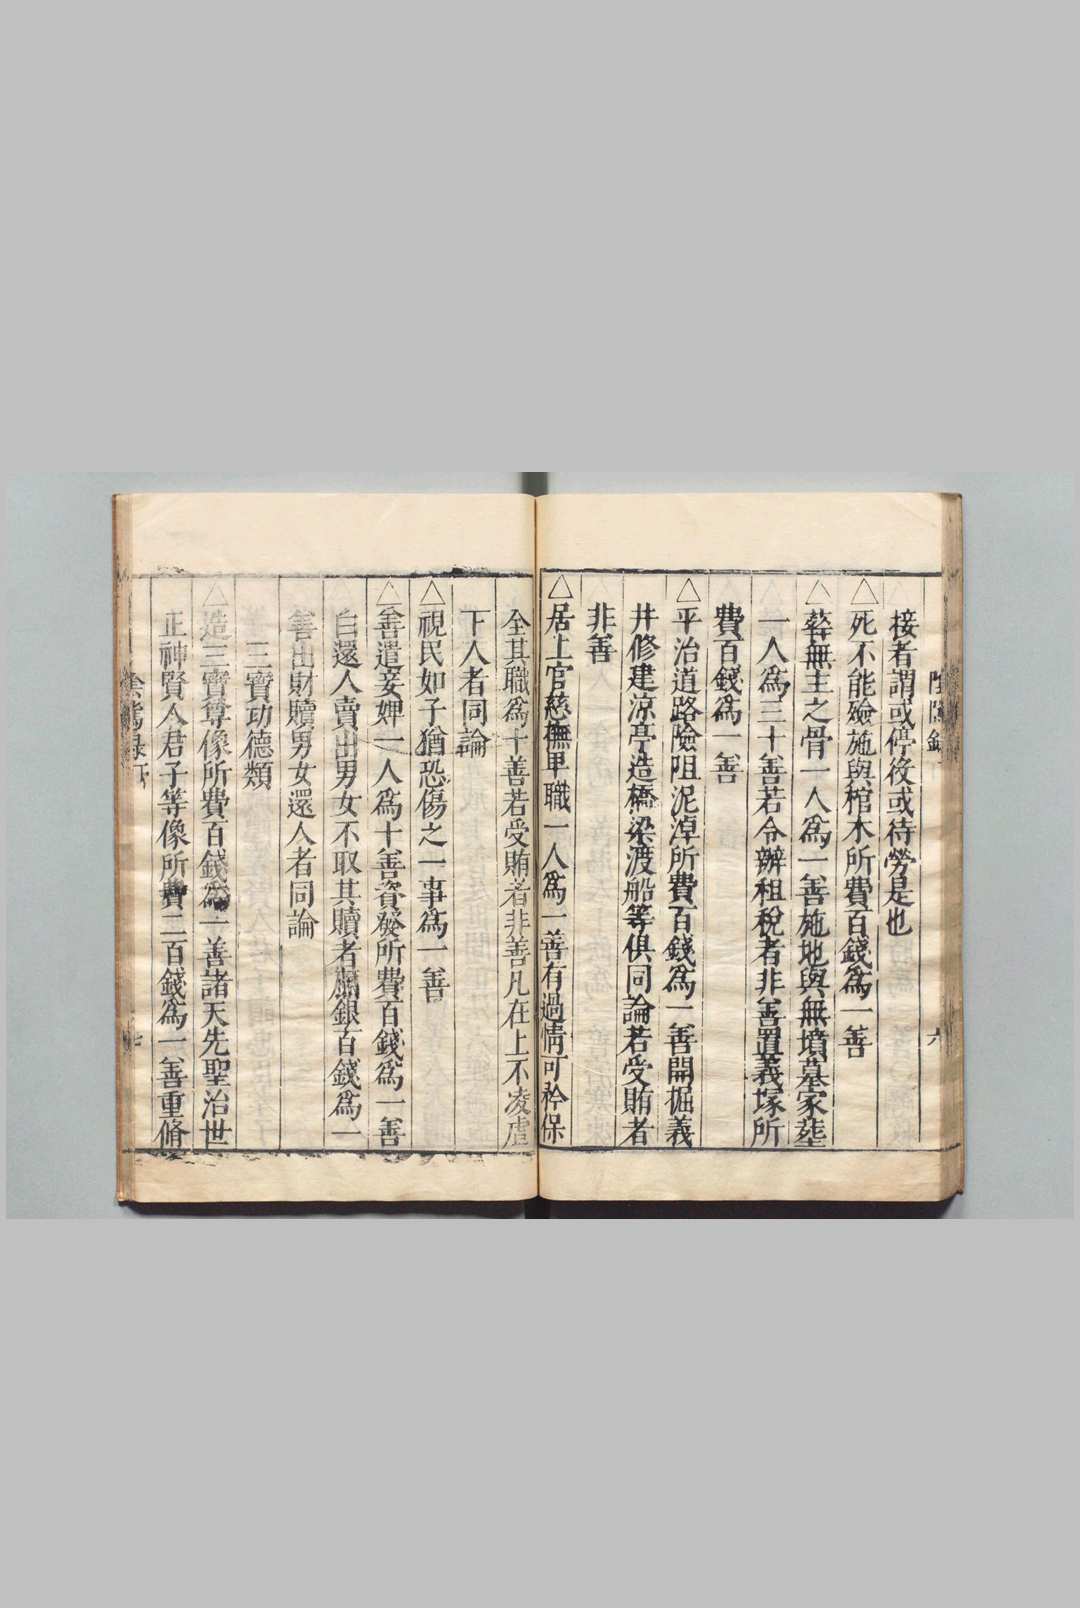 接者謂或停後或待勞是也
△死不能殮施與棺木所費百錢為一善
△葬無主之骨一人為一善施地與無墳墓家塟
一人為三十善若令辦租稅者非善置義塚所
費百錢為一善
△平治道路險阻泥淖所費百錢為一善開掘義
井修建涼亭造橋梁渡船等俱同論若受賄者
非善
△居上官慈撫卑職一人為一善有過情可矜保
六
全其職為十善若受賄者非善凡在上不凌虐
下人者同論
△視民如子猶恐傷之一事為一善
△善遣妾婢一人為十善資發所費百錢為一善
白還人賣出男女不取其贖者原銀百錢為一
善出財贖男女還人者同論
三寶功德類
△造三寶尊像所費百錢為一善諸天先聖治世
正神賢人君子等像所費二百錢為一善重脩
七